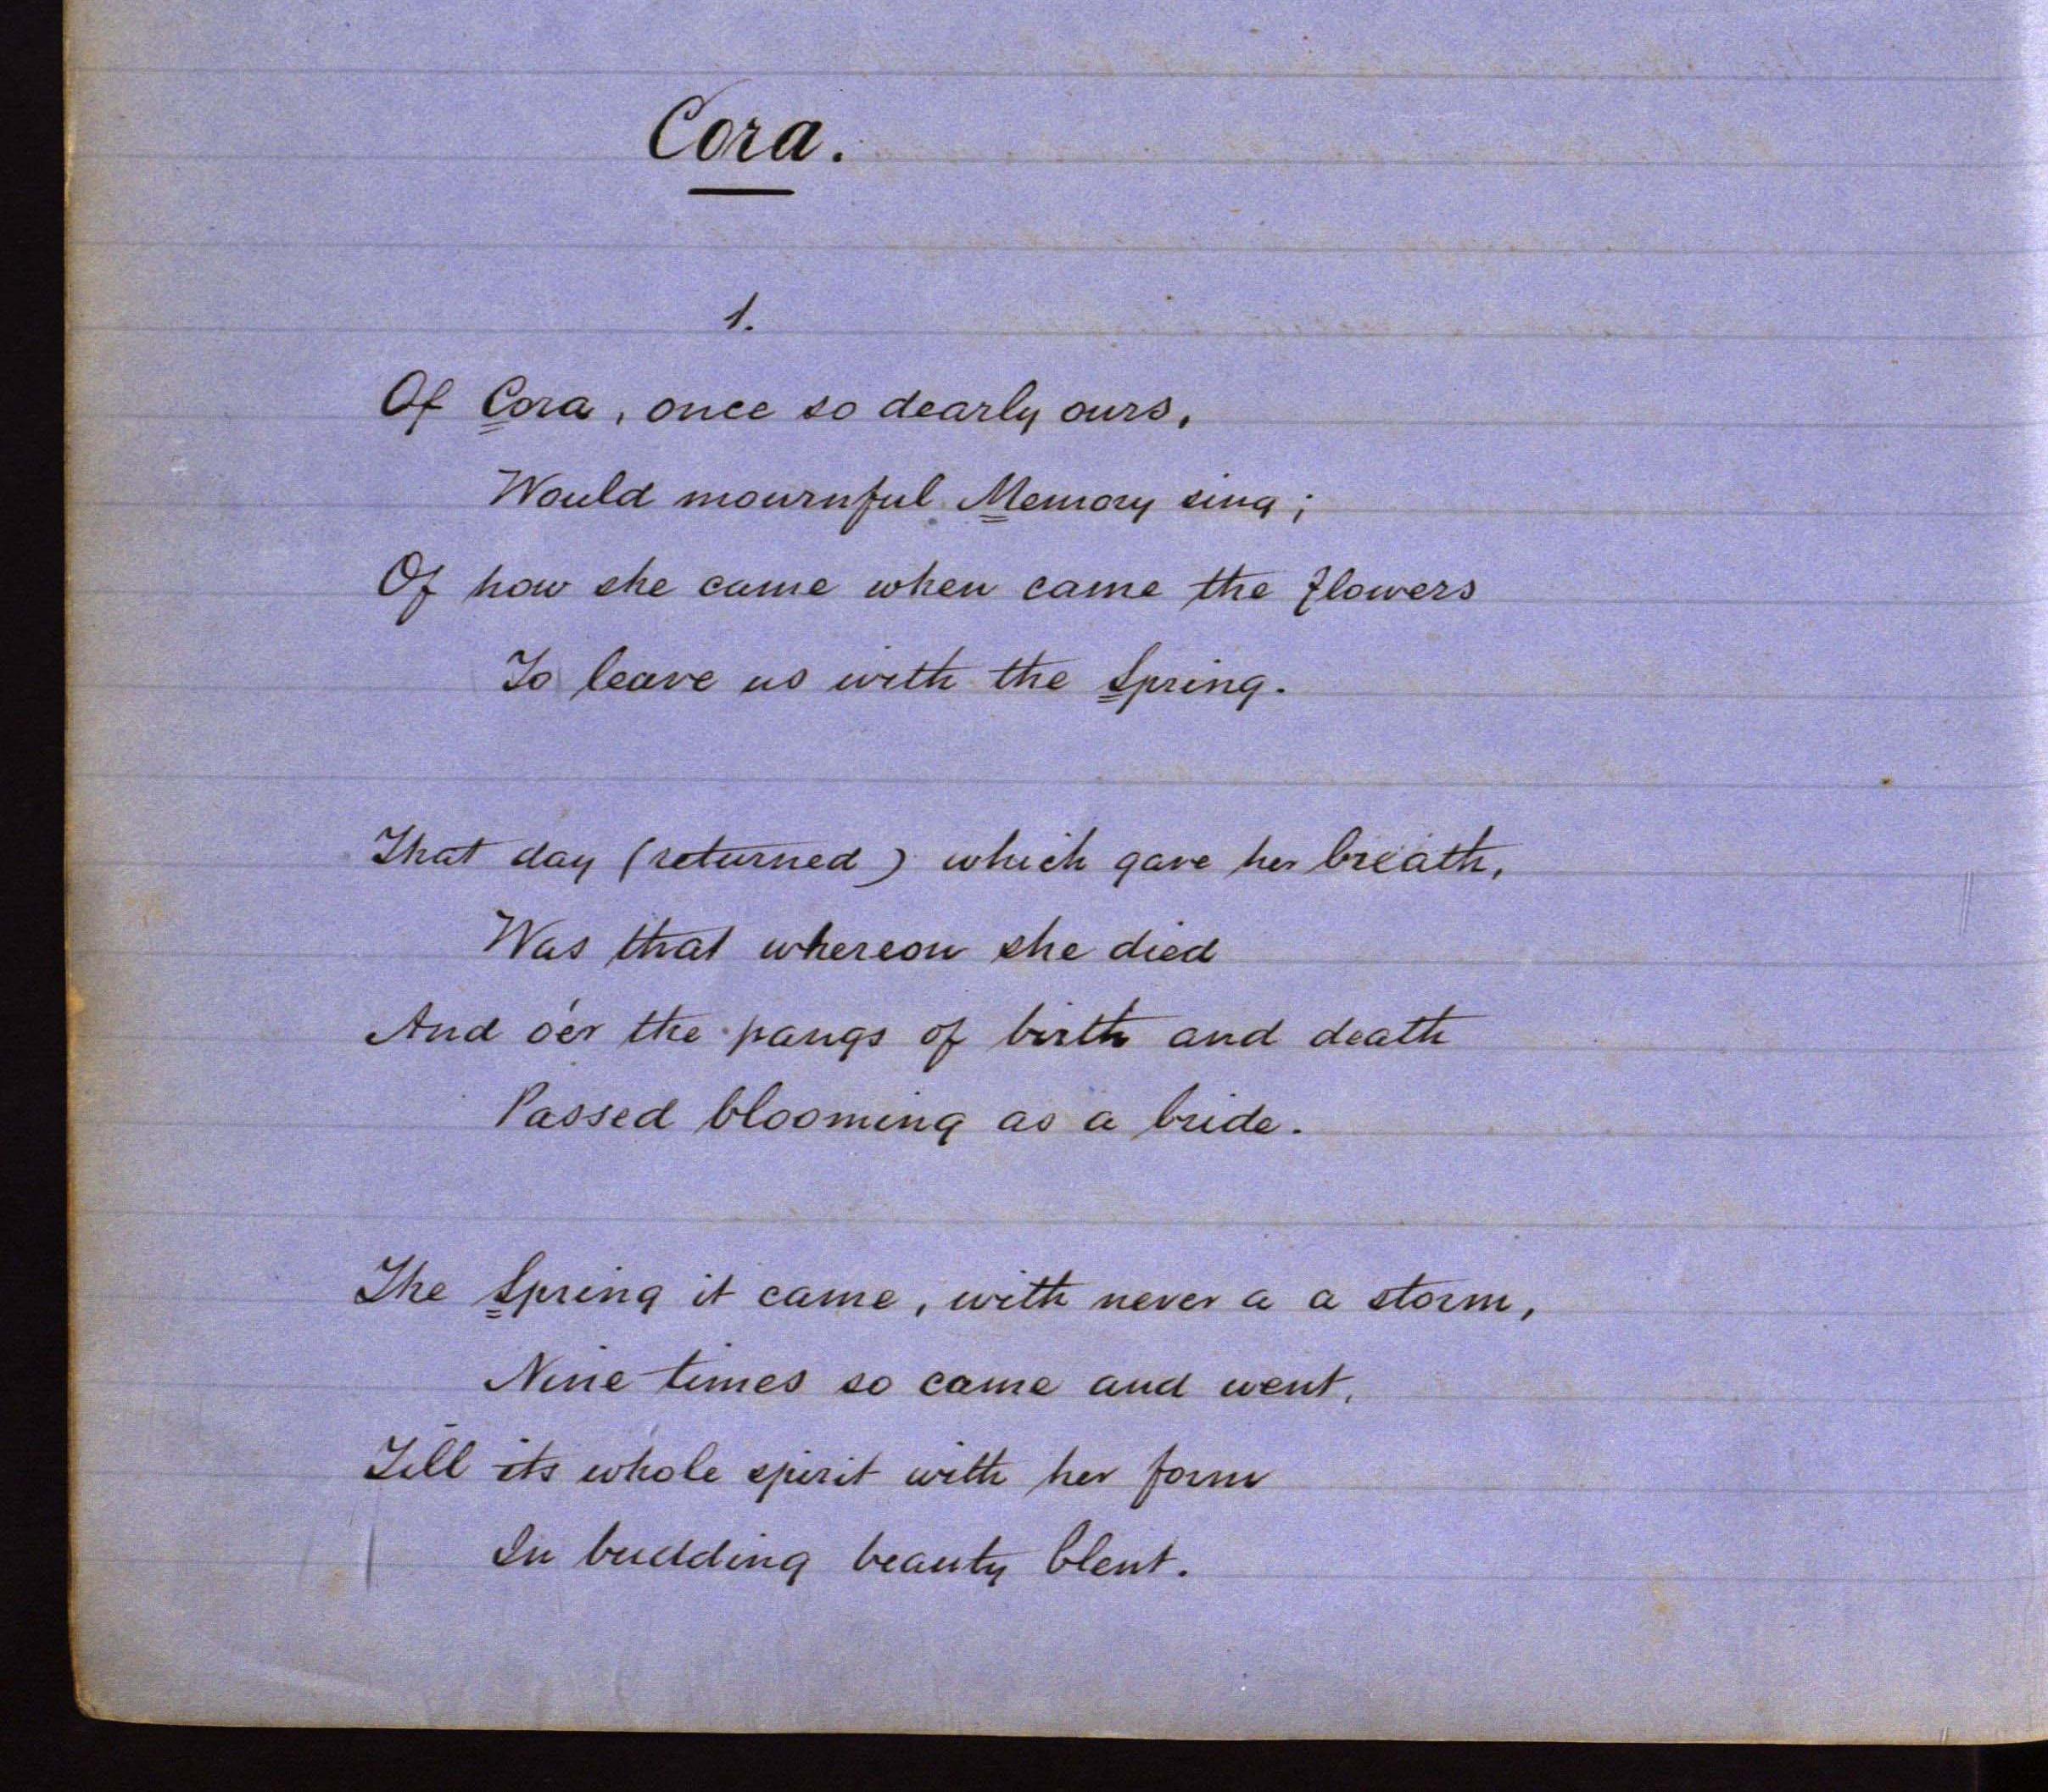 Cora.
1.
Of Cora, once so dearly ours,
Would mournful Memory sing;
Of how she came when came the flowers
To leave us with the Spring.
That day (returned) which gave her breath,
Was that whereon she died
And o'er the pangs of birth and death
Passed blooming as a bride.
The Spring it came, with never a a storm,
Nine times so came and went,
Till its whole spirit with her form
In budding beauty blent.